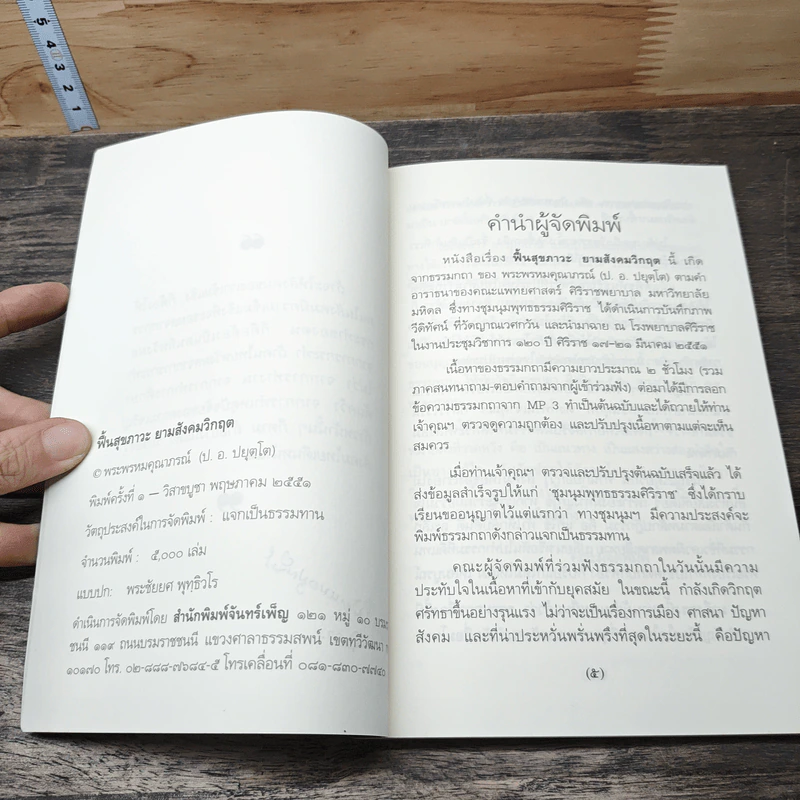 5 4 3 2 1
ฟื้นสุขภาวะ ยามสังคมวิกฤต
© พระพรหมคุณาภรณ์ (ป. อ. ปยุตฺโต)
พิมพ์ครั้งที่ ๑ — วิสาขบูชา พฤษภาคม ๒๕๕๑
วัตถุประสงค์ในการจัดพิมพ์ : แจกเป็นธรรมทาน
จำนวนพิมพ์ : ๕,๐๐๐ เล่ม
แบบปก: พระชัยยศ พุทฺธิวโร
ดำเนินการจัดพิมพ์โดย สำนักพิมพ์จันทร์เพ็ญ ๑๒๑ หมู่ ๑๐ บรม
ชนนี ๑๑๙ ถนนบรมราชชนนี แขวงศาลาธรรมสพน์ เขตทวีวัฒนา
๑๐๑๗๐ โทร. ๐๒-๘๘๘-๗๖๘๔-๕ โทรเคลื่อนที่ ๐๘๑-๘๓๐-๗๗๔๐
คำนำผู้จัดพิมพ์
หนังสือเรื่อง ฟื้นสุขภาวะ ยามสังคมวิกฤต นี้ เกิด
จากธรรมกถา ของ พระพรหมคุณาภรณ์ (ป. อ. ปยุตฺโต) ตามคำ
อาราธนาของคณะแพทยศาสตร์ ศิริราชพยาบาล มหาวิทยาลัย
มหิดล ซึ่งทางชุมนุมพุทธธรรมศิริราช ได้ดำเนินการบันทึกภาพ
วีดิทัศน์ ที่วัดญาณเวศกวัน และนำมาฉาย ณ โรงพยาบาลศิริราช
ในงานประชุมวิชาการ ๑๒๐ ปี ศิริราช ๑๗-๒๑ มีนาคม ๒๕๕๑
เนื้อหาของธรรมกถามีความยาวประมาณ ๒ ชั่วโมง (รวม
ภาคสนทนาถาม-ตอบคำถามจากผู้เข้าร่วมฟัง) ต่อมาได้มีการลอก
ข้อความธรรมกถาจาก MP 3 ทำเป็นต้นฉบับและได้ถวายให้ท่าน
เจ้าคุณฯ ตรวจดูความถูกต้อง และปรับปรุงเนื้อหาตามแต่จะเห็น
สมควร
เมื่อท่านเจ้าคุณฯ ตรวจและปรับปรุงต้นฉบับเสร็จแล้ว ได้
ส่งข้อมูลสำเร็จรูปให้แก่ 'ชุมนุมพุทธธรรมศิริราช' ซึ่งได้กราบ
เรียนขออนุญาตไว้แต่แรกว่า ทางชุมนุมฯ มีความประสงค์จะ
พิมพ์ธรรมกถาดังกล่าวแจกเป็นธรรมทาน
คณะผู้จัดพิมพ์ที่ร่วมฟังธรรมกถาในวันนั้นมีความ
ประทับใจในเนื้อหาที่เข้ากับยุคสมัย ในขณะนี้ กำลังเกิดวิกฤต
ศรัทธาขึ้นอย่างรุนแรง ไม่ว่าจะเป็นเรื่องการเมือง ศาสนา ปัญหา
สังคม และที่น่าประหวั่นพรั่นพรึงที่สุดในระยะนี้ คือปัญหา
(๕)